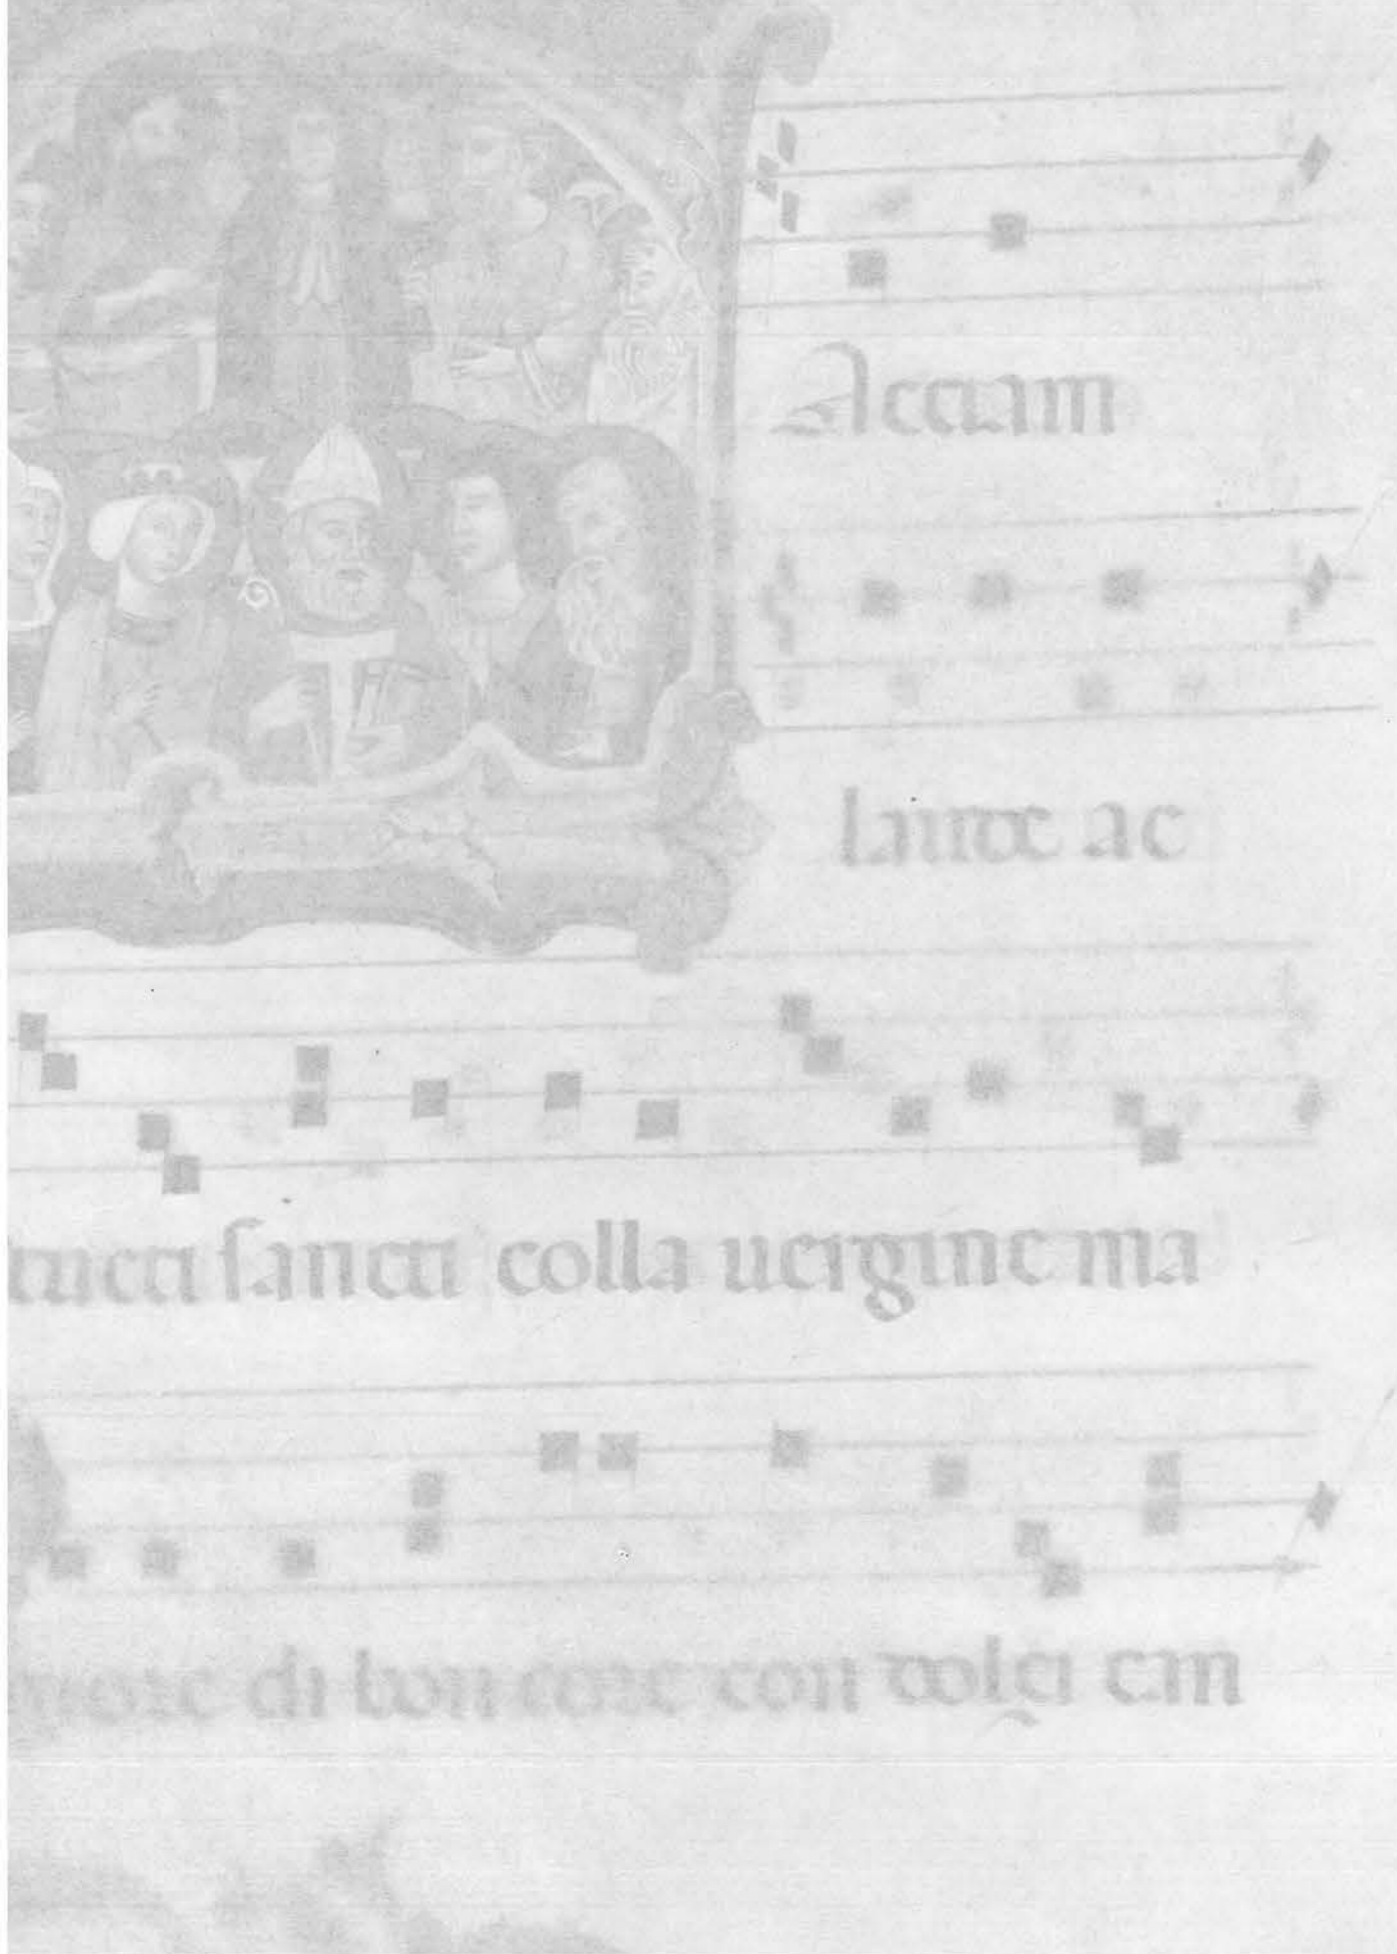 Acciam
laude ac
tucti sancti colla uergine ma
more di bon core con dolçi can